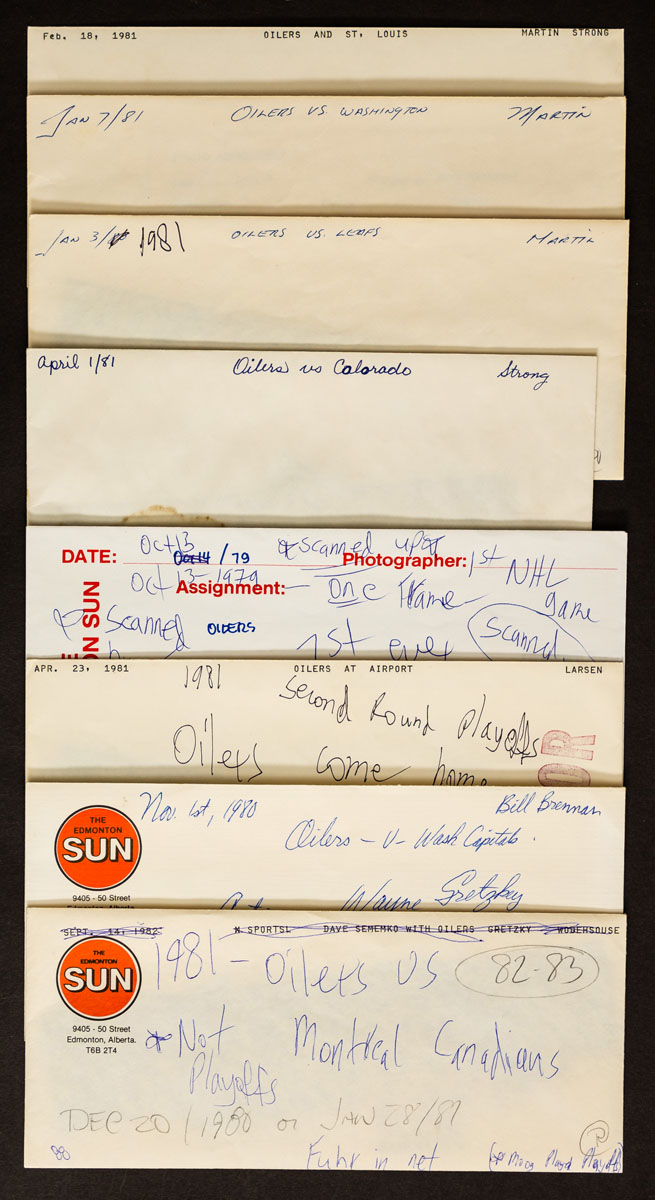 Feb. 18, 1981 OILERS AND ST. LOUIS MARTIN STRONG
JAN 7/81 OILERS VS. WASHINGTON MARTIN
JAN 3/ 1981 OILERS VS. LEAFS MARTIN
April 1/81 Oilers vs Colorado Strong
DATE: Oct 13 Oct 14 / 79 * scanned upst Photographer: 1st NHL
Oct 13-1979 Assignment: — One Frame game
ON SUN
Scanned OILERS 1st ever Scanned
APR. 23, 1981 OILERS AT AIRPORT LARSEN
1981 Second Round Playoffs
Oilers come home
OR
Nov. 1st, 1980 Bill Brennan
THE EDMONTON SUN
Oilers - V - Wash Capitals.
9405 - 50 Street
Edmonton, Alberta
Wayne Gretzky
SEPT. 14, 1982 SPORTSL DAVE SEMEMKO WITH OILERS GRETZKY WODEHSOUSE
THE EDMONTON SUN
1981 - Oilers VS 82-83
9405 - 50 Street
Edmonton, Alberta.
T6B 2T4
* Not Montreal Canadians
Playoffs
DEC 20/1980 or JAN 28/81
88 Fuhr in net (* Moog Played Playoffs)